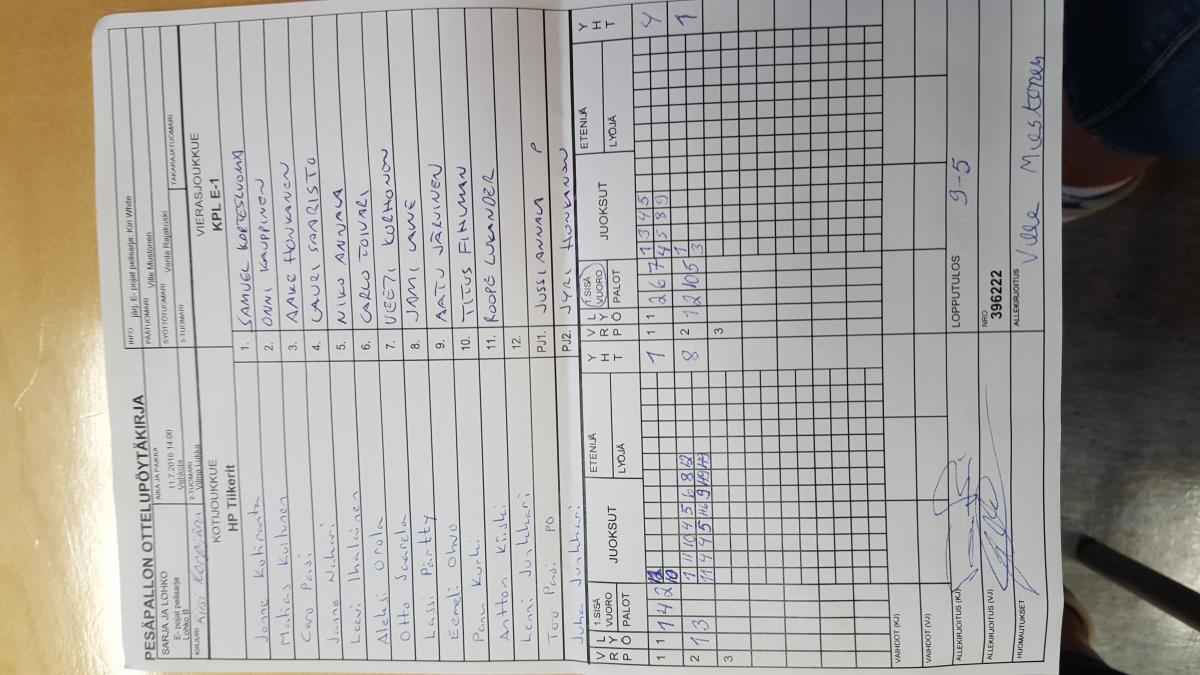 PESÄPALLON OTTELUPÖYTÄKIRJA
SARJA JA LOHKO
E- pojat pelisarja
Lohko B
AIKA JA PAIKKA
11.7.2016 14:00
INFO jörj. E- pojat pelisarja: Kiri White
PÄÄTUOMARI Ville Mustonen
SYÖTTÖTUOMARI Venla Rajakoski
KIRJURI
2-TUOMARI
3-TUOMARI
TAKARAJATUOMARI
KOTIJOUKKUE
HP Tiikerit
VIERASJOUKKUE
KPL E-1
Janne Kotiranta
1. SAMUEL KORTESLUOMA
Matias Kuitunen
2. ONNI KAUPPINEN
Caro Pasi
3. AAKE HONKANEN
4. LAURI SAARISTO
Leevi Ihalainen
5. NIKO ANNALA
Aleksi Orola
6. CARLO TOIVARI
Otto Saarela
7. VEETI KORHONEN
Lassi Pärtty
8. JAMI LAINE
Eemeli
9. AATU JÄRVINEN
10. TITUS FIHLMAN
Antton Kiiski
11. ROOPE LUKANDER
Lenni Junkkari
12.
Tero Pasi PD
PJ1. JUSSI ANNALA P
Juha Junkkari
PJ2. JYRI HONKANEN
V R P
L Y Ö
1.SISÄ VUORO
PALOT
JUOKSUT
ETENIJÄ
LYÖJÄ
Y H T
V R P
L Y Ö
1.SISÄ VUORO
PALOT
JUOKSUT
ETENIJÄ
LYÖJÄ
Y H T
1 1 1 4 2 10 1
1 1 2 6 7 1 3 4 5 4
4 5 8 9
2 1 3 1 11 10 4 5 6 8 12 8
2 1 2 10 5 1 1
3
3
3
VAIHDOT (KJ)
VAIHDOT (VJ)
ALLEKIRJOITUS (KJ)
LOPPUTULOS 9-5
ALLEKIRJOITUS (VJ)
NRO
396222
HUOMAUTUKSET
ALLEKIRJOITUS
Ville Mustonen